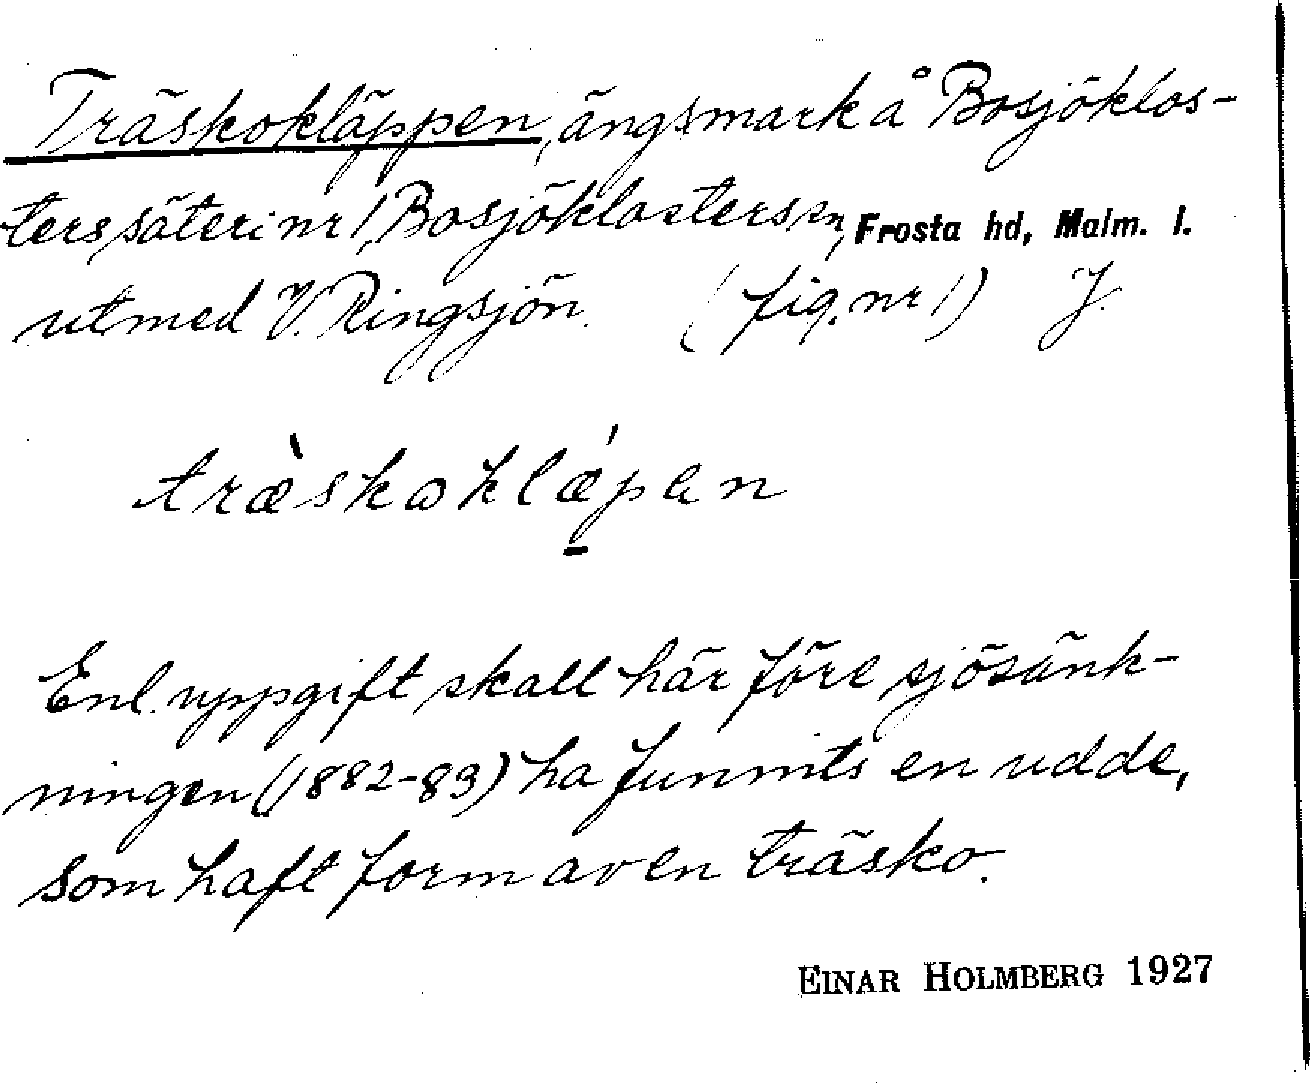 Träskokläppen, ängsmark å Bosjöklos-
ters säteri nr 1, Bosjöklosters sn, Frosta hd, Malm. l.
utmed V. Ringsjön. (fig. nr 1) J.
træ̀skoklǽpen
Enl. uppgift skall här före sjösänk-
ningen (1882-83) ha funnits en udde,
som haft form av en träsko.
EINAR HOLMBERG 1927